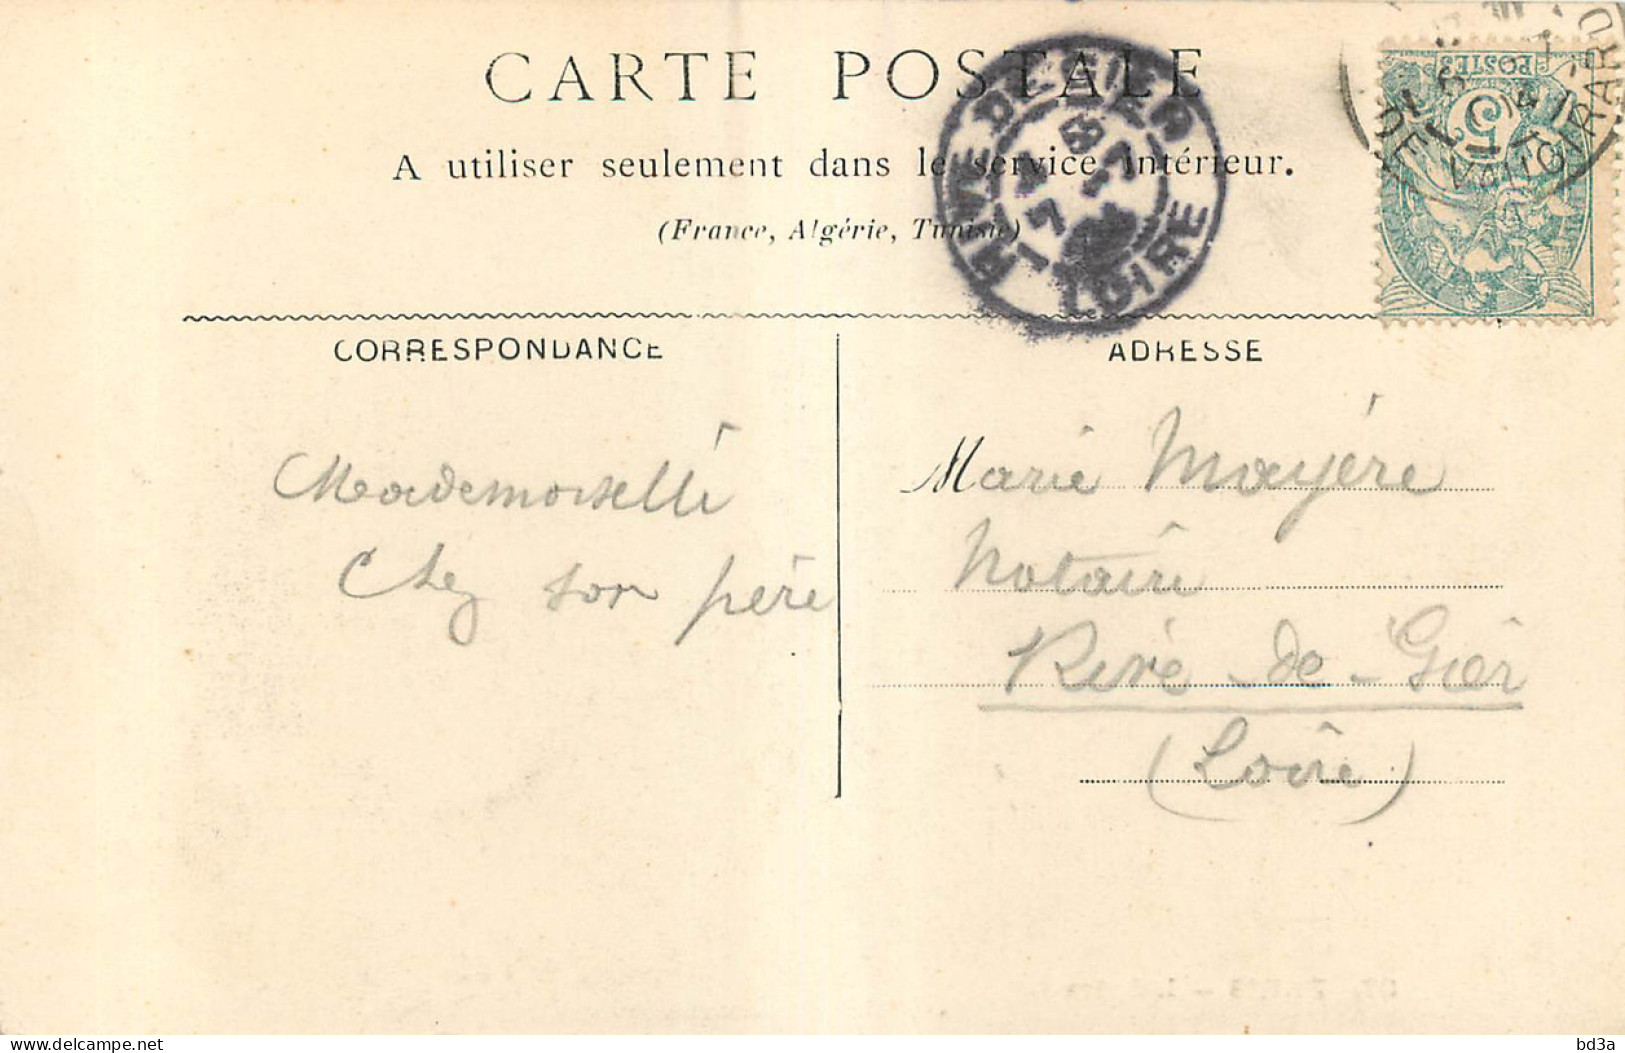 CARTE POSTALE
A utiliser seulement dans le service intérieur.
(France, Algérie, Tunisie)
RIVE DE GIER
LOIRE
POSTES
5
VAUGIRARD
CORRESPONDANCE
ADRESSE
Mademoiselle
Chez son père
Marie Mayére
Notaire
Rive-de-Gier
(Loire)
delcampe.net
bd3a